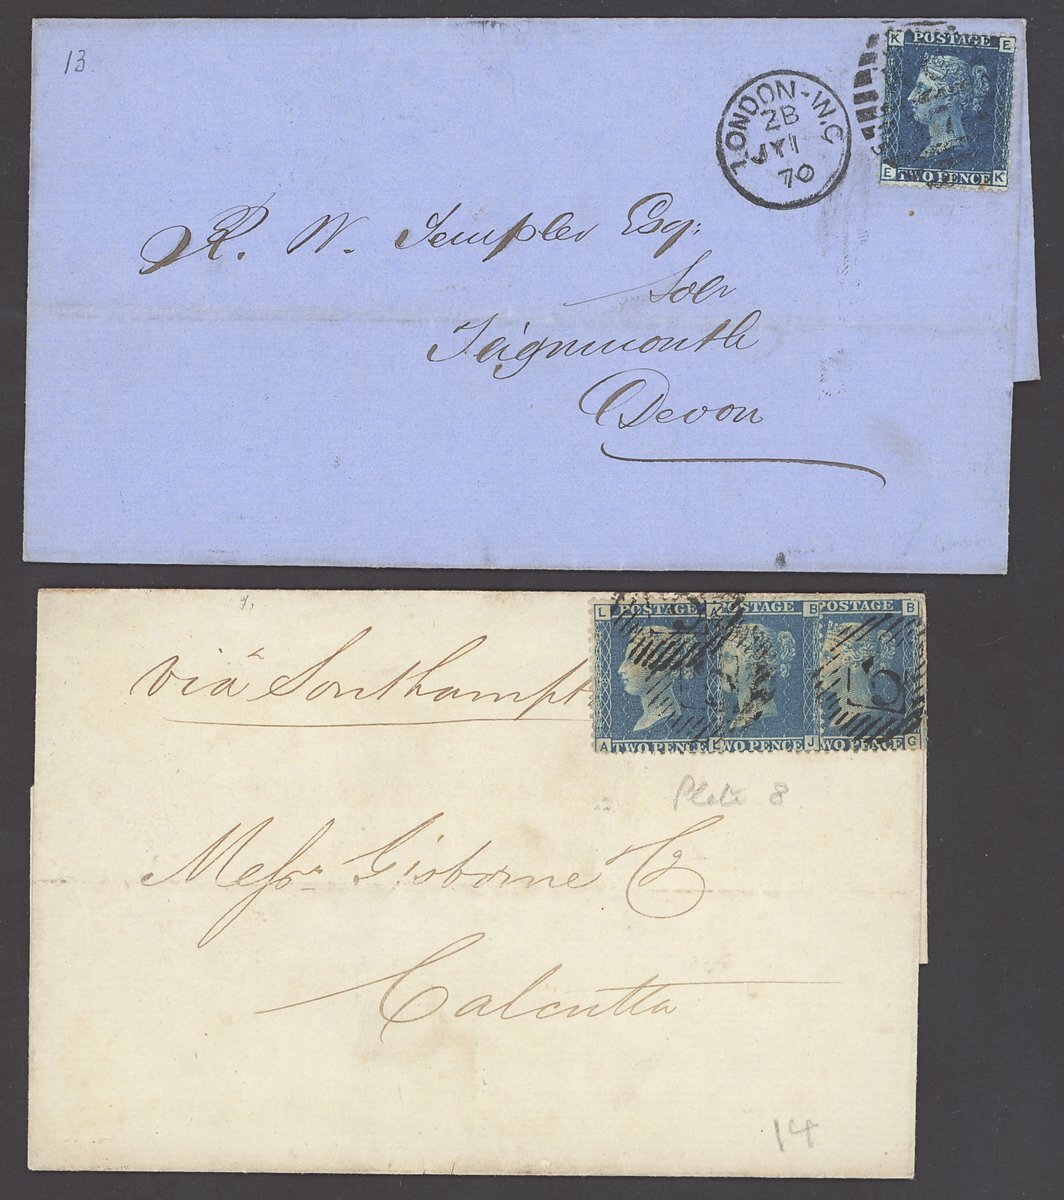 13
LONDON-W.C
2B
JY 1
70
K POSTAGE E
E TWO PENCE K
R. W. Templer Esq:
Solr
Teignmouth
Devon
viâ Southampt
L POSTAGE
A TWO PENCE L
POSTAGE B
WO PENCE J
POSTAGE B
WO PENCE G
2
Plate 8
Messrs Gisborne & Co
Calcutta
14